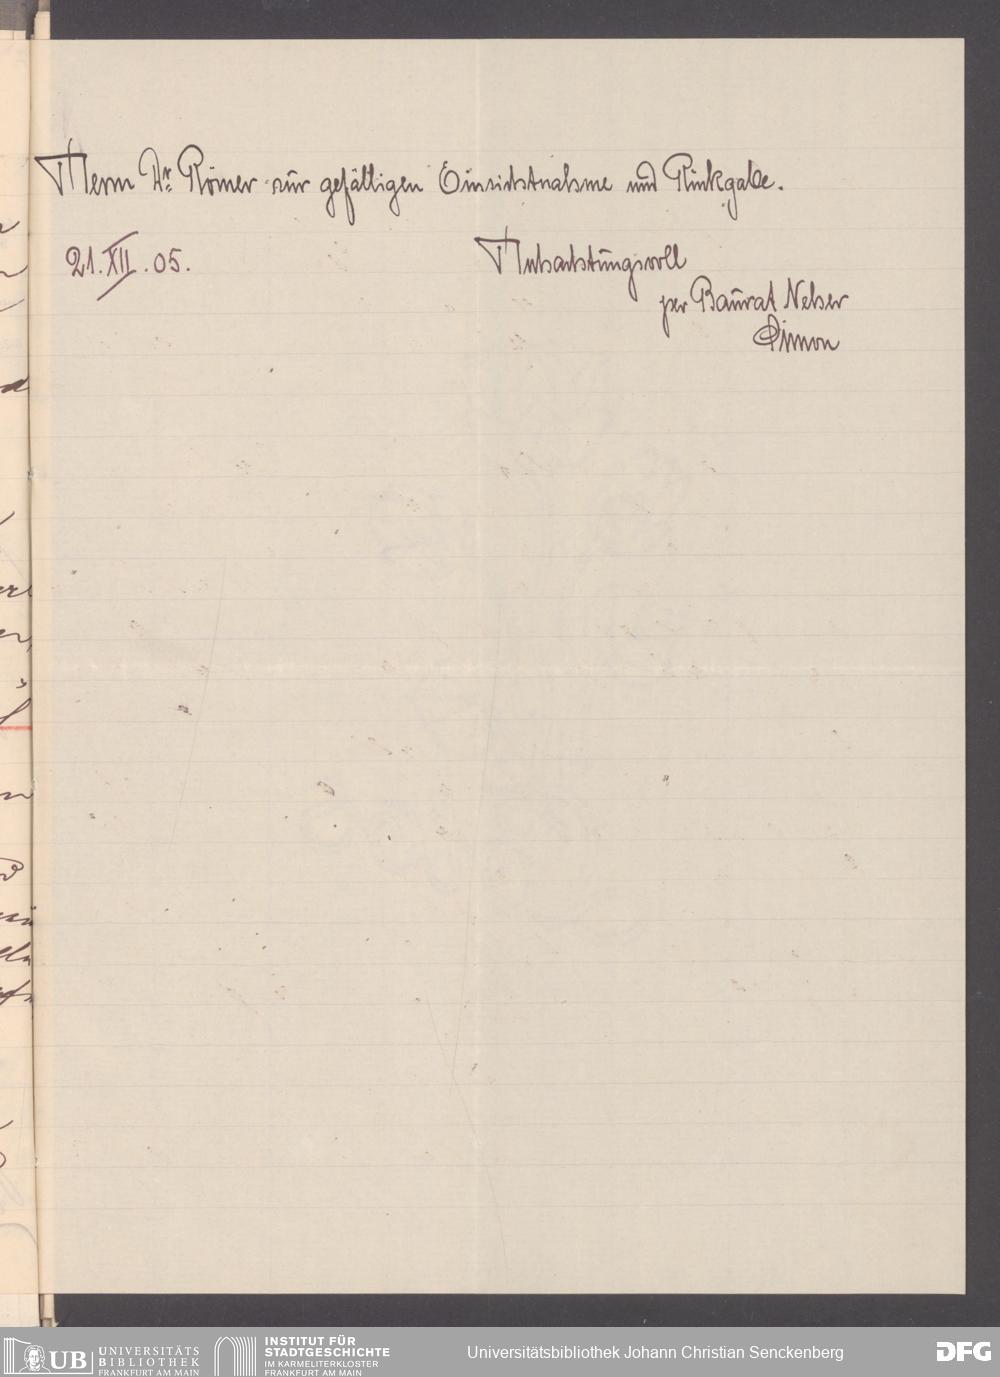 Herrn Dr. Römer zur gefälligen Einsichtnahme und Rückgabe.
21.XII.05.
Hochachtungsvoll
per Baurat Neher
Simon
UB
UNIVERSITÄTS
BIBLIOTHEK
FRANKFURT AM MAIN
INSTITUT FÜR
STADTGESCHICHTE
IM KARMELITERKLOSTER
FRANKFURT AM MAIN
Universitätsbibliothek Johann Christian Senckenberg
DFG